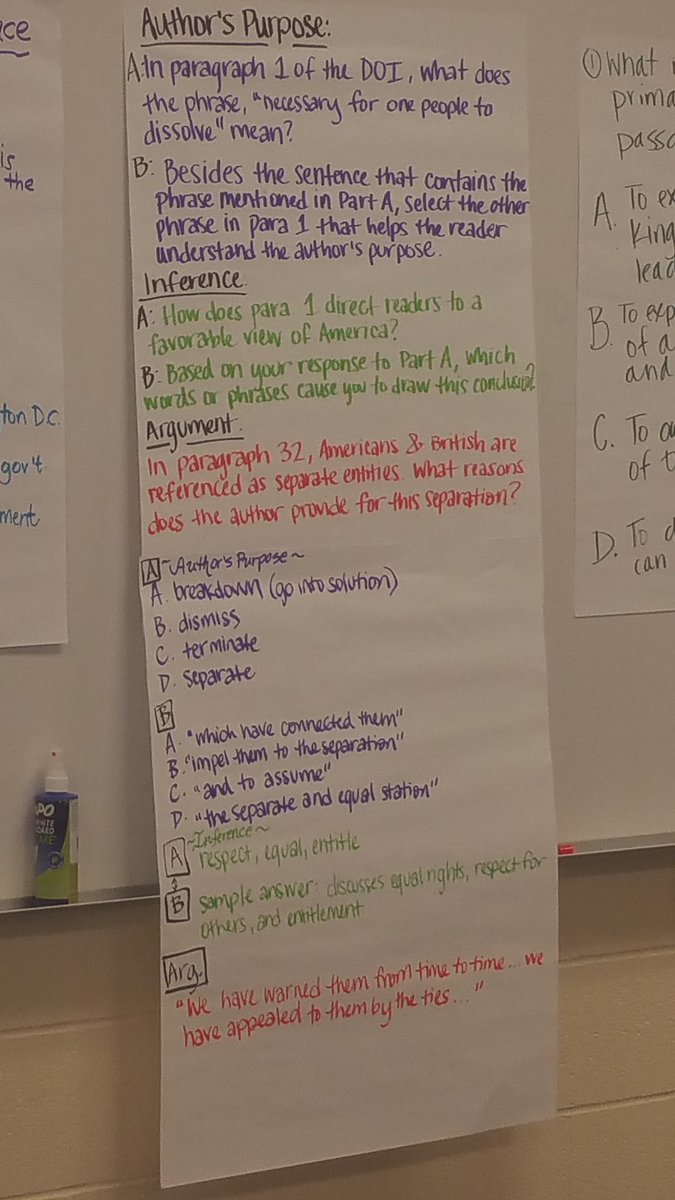 ace
is
the
ton D.C.
gov't
ment
Author's Purpose:
A: In paragraph 1 of the DOI, what does
the phrase, "necessary for one people to
dissolve" mean?
B: Besides the sentence that contains the
phrase mentioned in Part A, select the other
phrase in para 1 that helps the reader
understand the author's purpose.
Inference
A: How does para 1 direct readers to a
favorable view of America?
B: Based on your response to Part A, which
words or phrases cause you to draw this conclusion?
Argument:
In paragraph 32, Americans & British are
referenced as separate entities. What reasons
does the author provide for this separation?
A ~Author's Purpose~
A. breakdown (go into solution)
B. dismiss
C. terminate
D. separate
B
A. "which have connected them"
B. "impel them to the separation"
C. "and to assume"
D. "the separate and equal station"
~Inference~
A respect, equal, entitle
B sample answer: discusses equal rights, respect for
others, and entitlement
Arg.
"We have warned them from time to time... we
have appealed to them by the ties..."
① What
prima
passa
A. To ex
King
lead
B. To exp
of a
and
C. To ou
of t
D. To d
can